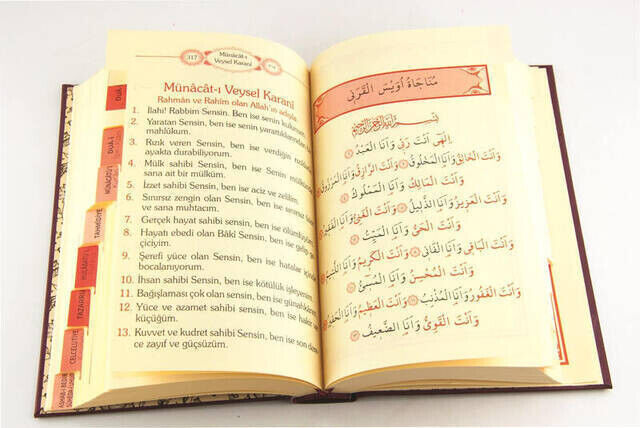 DUÂ
DUÂ-I
MÜNÂCÂT-I
TAHMÎDİYE
HÜLÂSATÜ'L
TAZARRU
CELCELÛTİYE
ASHÂB-I BEDİR
317
Münâcât-ı
Veysel Karanî
Münâcât-ı Veysel Karanî
Rahmân ve Rahîm olan Allah'ın adıyla.
1. İlahî! Rabbim Sensin. Ben ise senin kulunum.
2. Yaratan Sensin, ben ise senin yarattıklarından
mahlûkum.
3. Rızık veren Sensin, ben ise verdiğin
ayakta durabiliyorum.
4. Mülk sahibi Sensin, ben ise Senin mülkün
sana ait bir mülküm.
5. İzzet sahibi Sensin, ben ise aciz ve zelilim.
6. Sınırsız zengin olan Sensin, ben ise sınırsız
ve sana muhtacım.
7. Gerçek hayat sahibi Sensin, ben ise ölümlüyüm.
8. Hayatı ebedi olan Bâkî Sensin, ben ise gelip
çiciyim.
9. Şerefi yüce olan Sensin, ben ise hatalar içinde
bocalanıyorum.
10. İhsan sahibi Sensin, ben ise kötülük işleyenim.
11. Bağışlaması çok olan sensin, ben ise günahkârım.
12. Yüce ve azamet sahibi Sensin, ben ise hakir
küçüğüm.
13. Kuvvet ve kudret sahibi Sensin, ben ise son dere
ce zayıf ve güçsüzüm.
مُنَاجَاةُ اُوَيْسَ الْقَرَنِى
بِسْمِ اللّٰهِ الرَّحْمٰنِ الرَّحِيمِ
اِلٰهِى اَنْتَ رَبِّى وَاَنَا الْعَبْدُ
وَاَنْتَ الْخَالِقُ وَاَنَا الْمَخْلُوقُ وَاَنْتَ الرَّزَّاقُ وَاَنَا الْمَرْزُوقُ
وَاَنْتَ الْمَالِكُ وَاَنَا الْمَمْلُوكُ
وَاَنْتَ الْعَزِيزُ وَاَنَا الذَّلِيلُ وَاَنْتَ الْغَنِىُّ وَاَنَا الْفَقِيرُ
وَاَنْتَ الْحَىُّ وَاَنَا الْمَيِّتُ
وَاَنْتَ الْبَاقِى وَاَنَا الْفَانِى وَاَنْتَ الْكَرِيمُ وَاَنَا اللَّئِيمُ
وَاَنْتَ الْمُحْسِنُ وَاَنَا الْمُسِىءُ
وَاَنْتَ الْغَفُورُ وَاَنَا الْمُذْنِبُ وَاَنْتَ الْعَظِيمُ وَاَنَا الْحَقِيرُ
وَاَنْتَ الْقَوِىُّ وَاَنَا الضَّعِيفُ